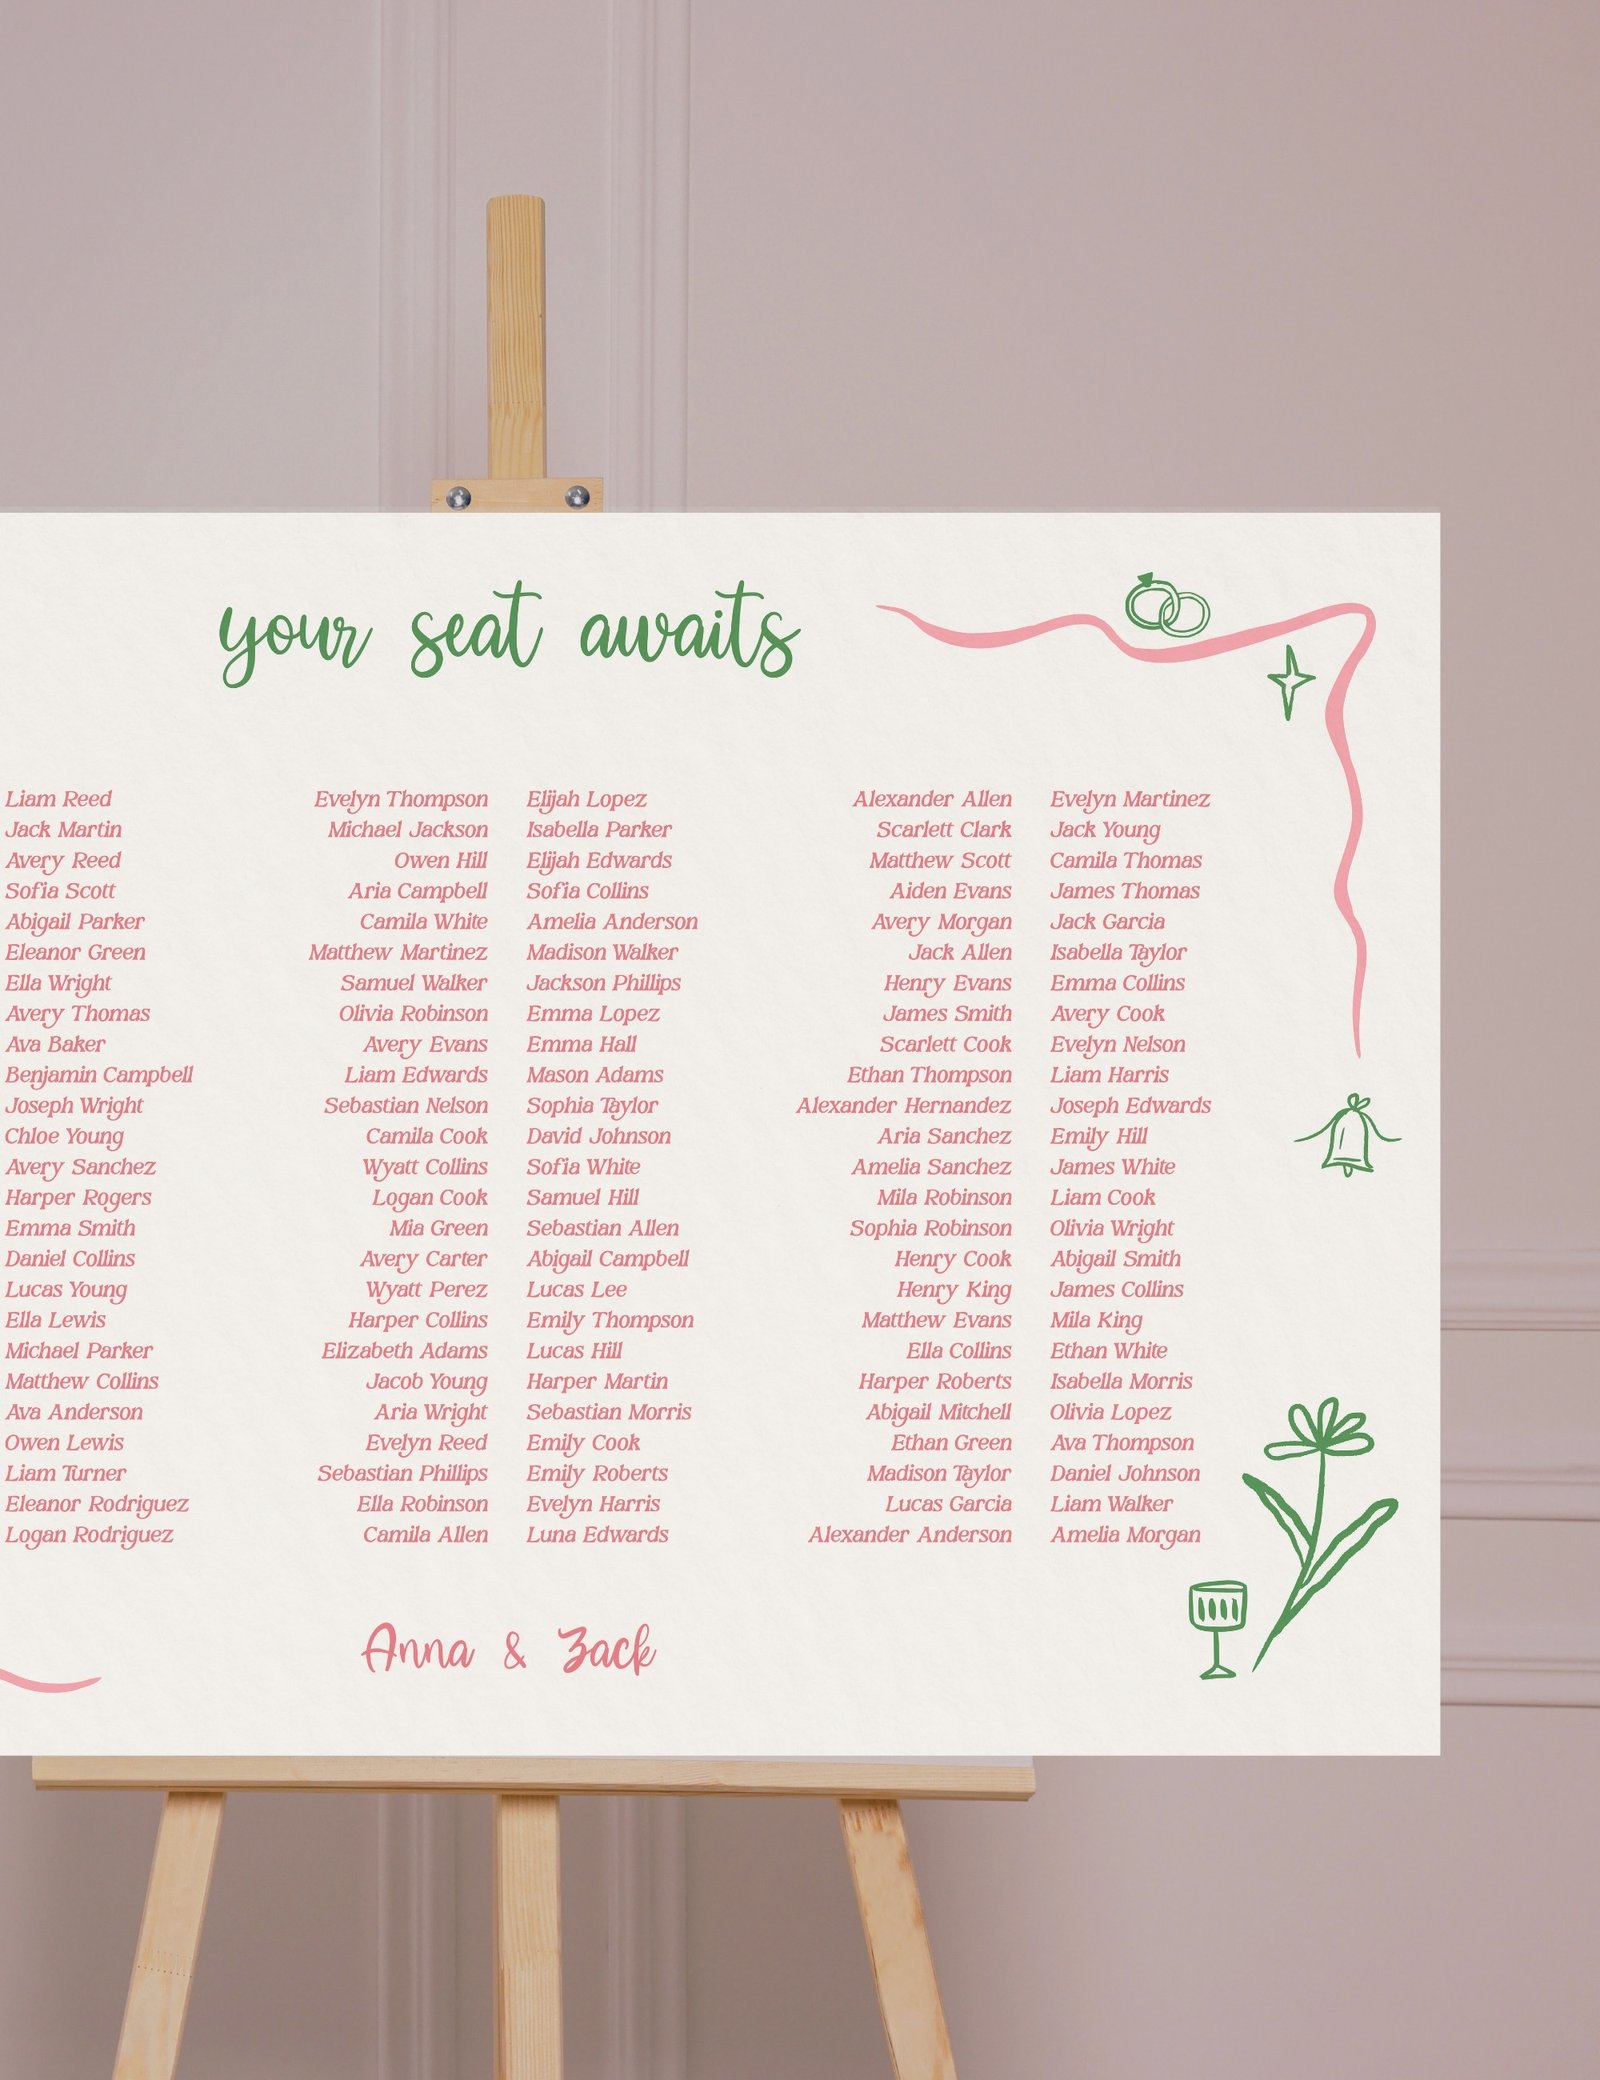 your seat awaits
Liam Reed
Jack Martin
Avery Reed
Sofia Scott
Abigail Parker
Eleanor Green
Ella Wright
Avery Thomas
Ava Baker
Benjamin Campbell
Joseph Wright
Chloe Young
Avery Sanchez
Harper Rogers
Emma Smith
Daniel Collins
Lucas Young
Ella Lewis
Michael Parker
Matthew Collins
Ava Anderson
Owen Lewis
Liam Turner
Eleanor Rodriguez
Logan Rodriguez
Evelyn Thompson
Michael Jackson
Owen Hill
Aria Campbell
Camila White
Matthew Martinez
Samuel Walker
Olivia Robinson
Avery Evans
Liam Edwards
Sebastian Nelson
Camila Cook
Wyatt Collins
Logan Cook
Mia Green
Avery Carter
Wyatt Perez
Harper Collins
Elizabeth Adams
Jacob Young
Aria Wright
Evelyn Reed
Sebastian Phillips
Ella Robinson
Camila Allen
Elijah Lopez
Isabella Parker
Elijah Edwards
Sofia Collins
Amelia Anderson
Madison Walker
Jackson Phillips
Emma Lopez
Emma Hall
Mason Adams
Sophia Taylor
David Johnson
Sofia White
Samuel Hill
Sebastian Allen
Abigail Campbell
Lucas Lee
Emily Thompson
Lucas Hill
Harper Martin
Sebastian Morris
Emily Cook
Emily Roberts
Evelyn Harris
Luna Edwards
Alexander Allen
Scarlett Clark
Matthew Scott
Aiden Evans
Avery Morgan
Jack Allen
Henry Evans
James Smith
Scarlett Cook
Ethan Thompson
Alexander Hernandez
Aria Sanchez
Amelia Sanchez
Mila Robinson
Sophia Robinson
Henry Cook
Henry King
Matthew Evans
Ella Collins
Harper Roberts
Abigail Mitchell
Ethan Green
Madison Taylor
Lucas Garcia
Alexander Anderson
Evelyn Martinez
Jack Young
Camila Thomas
James Thomas
Jack Garcia
Isabella Taylor
Emma Collins
Avery Cook
Evelyn Nelson
Liam Harris
Joseph Edwards
Emily Hill
James White
Liam Cook
Olivia Wright
Abigail Smith
James Collins
Mila King
Ethan White
Isabella Morris
Olivia Lopez
Ava Thompson
Daniel Johnson
Liam Walker
Amelia Morgan
Anna & Zack